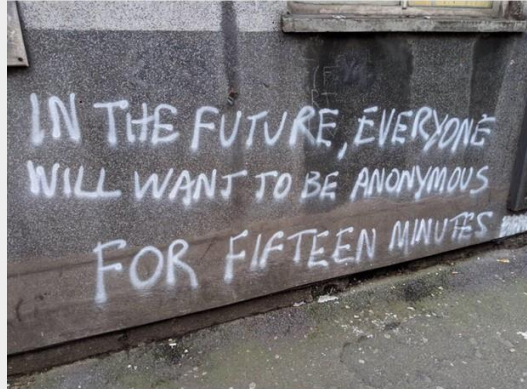 IN THE FUTURE, EVERYONE
WILL WANT TO BE ANONYMOUS
FOR FIFTEEN MINUTES